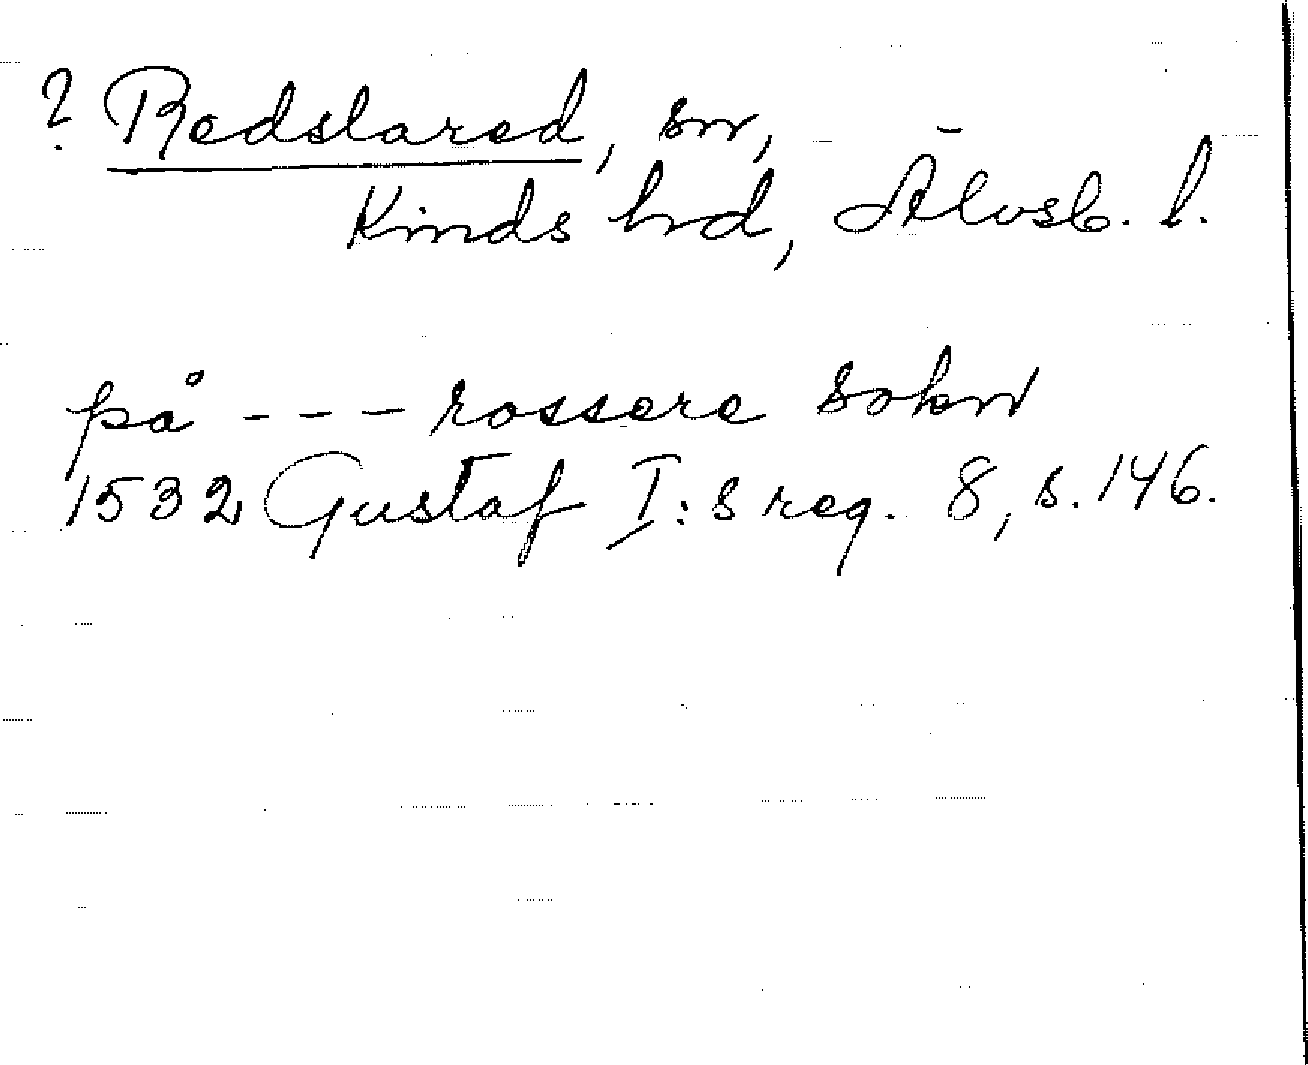 ? Redslared, sn,
Kinds hd, Älvsb. l.
på - - - rossere sokn
1532 Gustaf I:s reg. 8, s. 146.